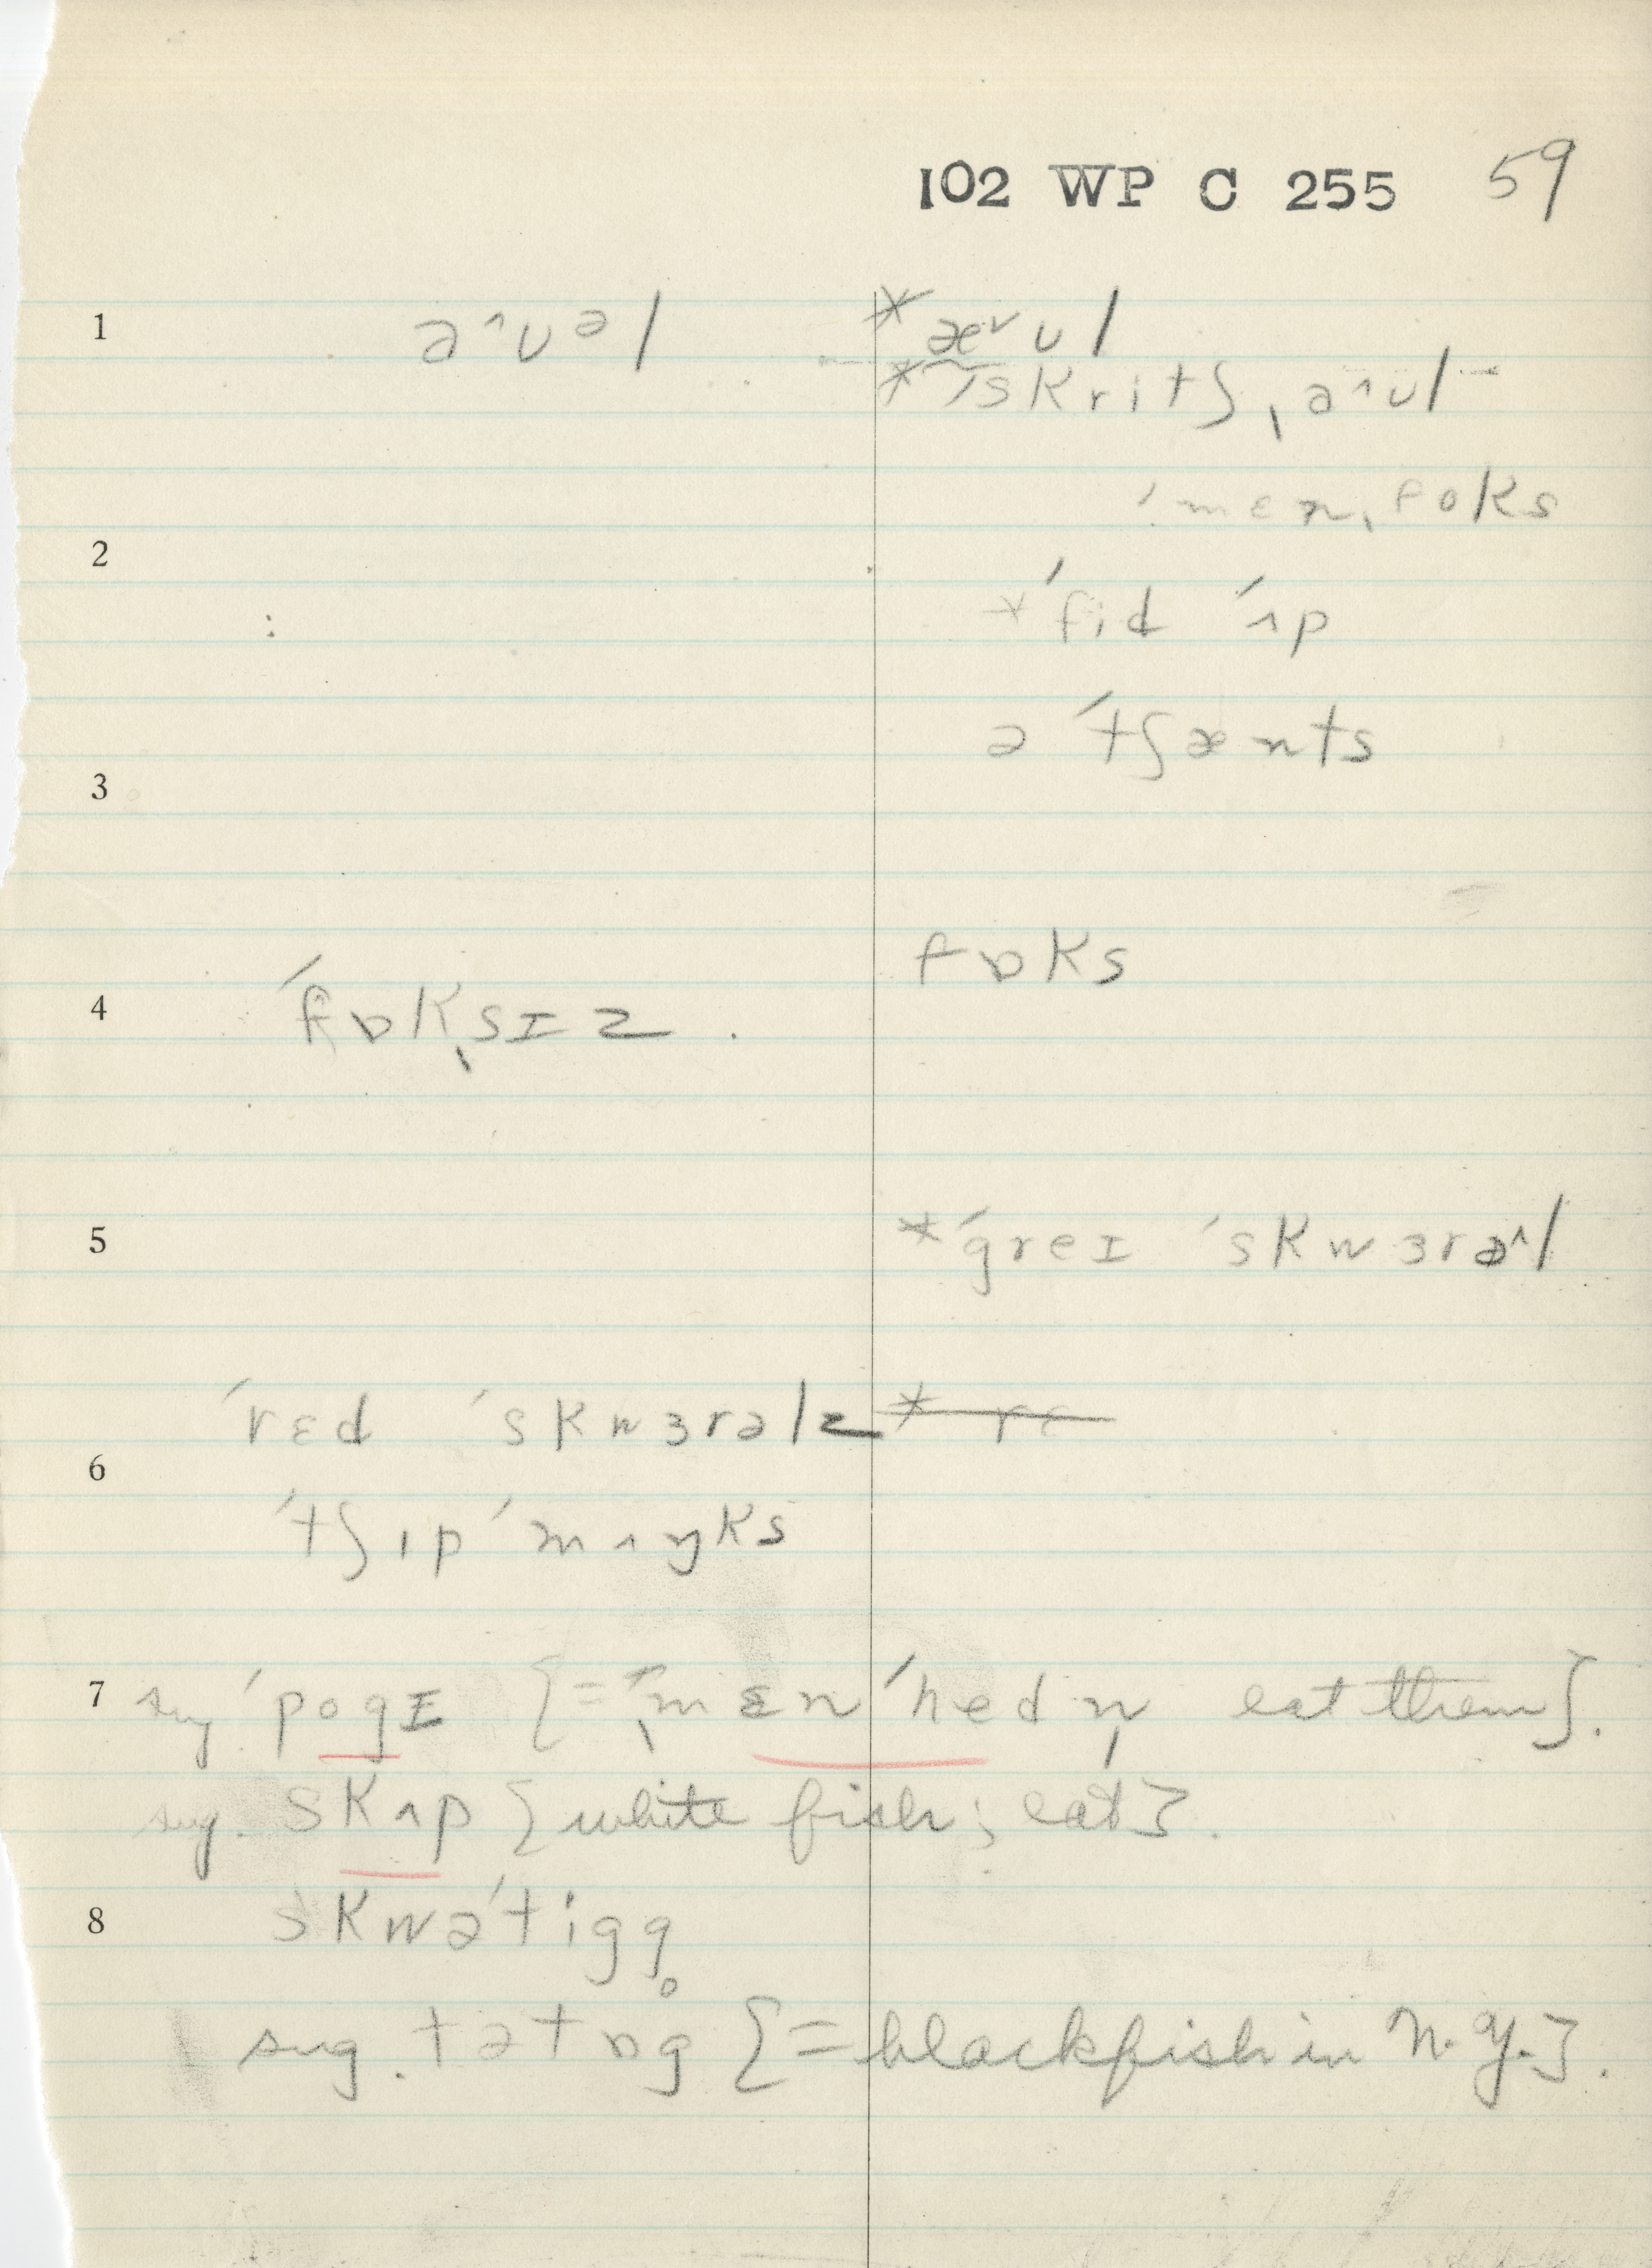 102 WP C 255 59
1 a^ᴜəl *æ˅ᴜl
*ˈskritʃˌa^ᴜl
ˈmɛnˌfoks
2
*ˈfid ˈʌp
ə ˈtʃænts
3
fɒks
4 ˈfɒkˌsɪz.
5 *ˈgreɪ ˈskwɜrə^l
ˈrɛd ˈskwɜrəlz * rɛ
6
ˈtʃɪpˈmʌŋks
7 sug. ˈpogɪ {= ˌmɛnˈhedn̩ eat them}.
sug. skʌp {white fish; eat}.
8 skwəˈtigg̥
sug. tətɒg {= blackfish in N.Y.}.